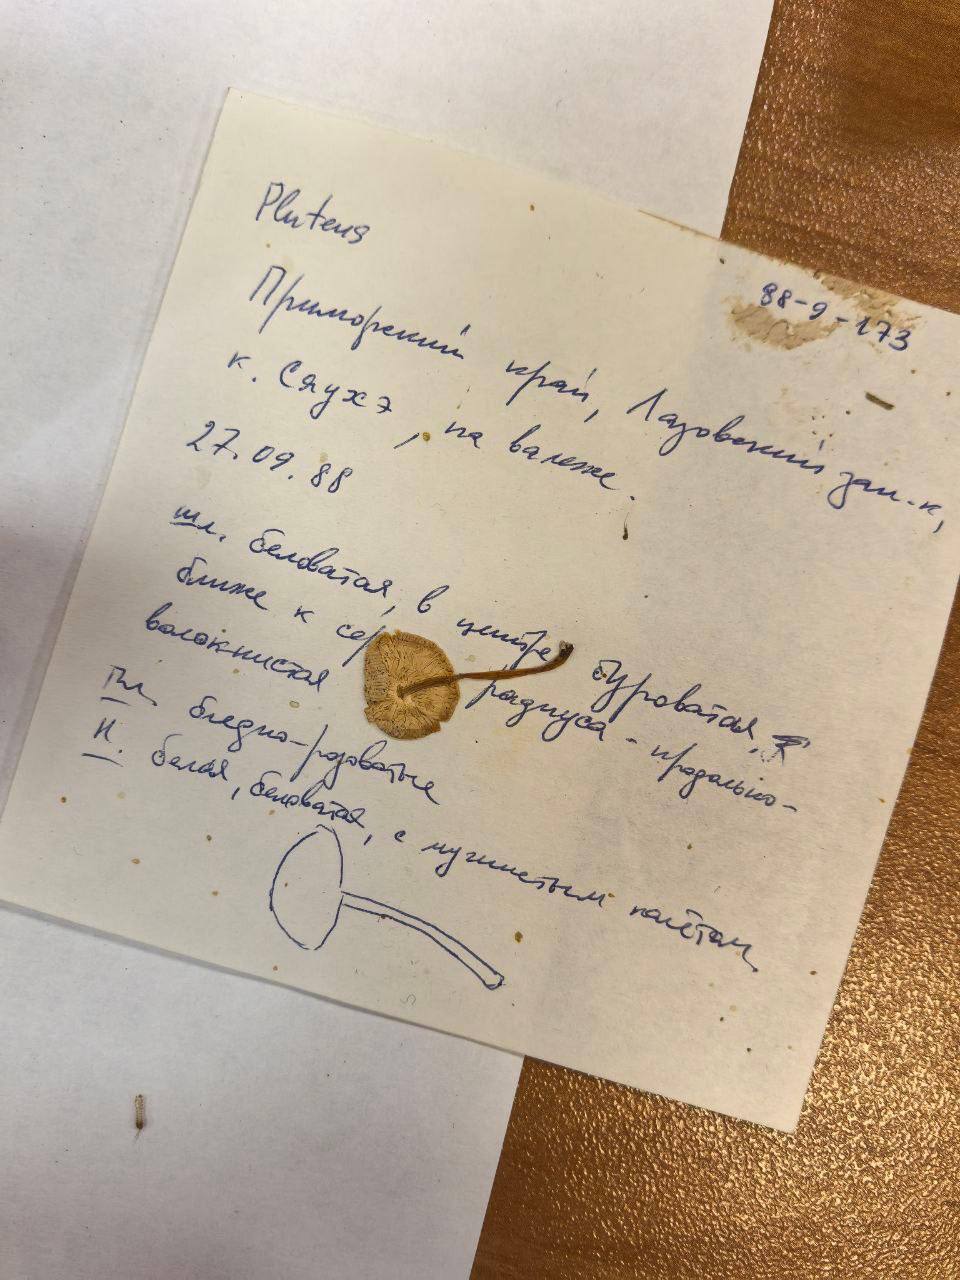 Pluteus
88-9-173
Приморский край, Лазовский зап-к,
к. Сяухэ, на валеже.
27.09.88
шл. беловатая, в центре буроватая,
ближе к сер радиуса - продольно-
волокнистая
Пл. бледно-розоватые
Н. белая, беловатая, с мучнистым налётом